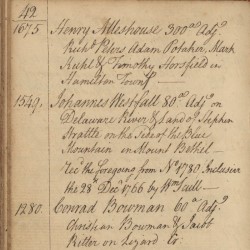 42
1675. Henry Alleshouse 300 as Adjg
Richd Peters Adam Potaker, Mark
Kuhl & Timothy Horsfield in
Hamilton Townsp
1549. Johannes Westfall 80 as Adjg on
Delaware River & Land of Stephen
on the Side of the Blue
Mountain in Mount Bethel
Rec'd the foregoing from No 1780 Inclusive
the 28th Decr 1766 by Wm Scull
1280. Conrad Bowman 60 as Adjg
Christian Bowman & Jacob
Ritter on Lizard Cr